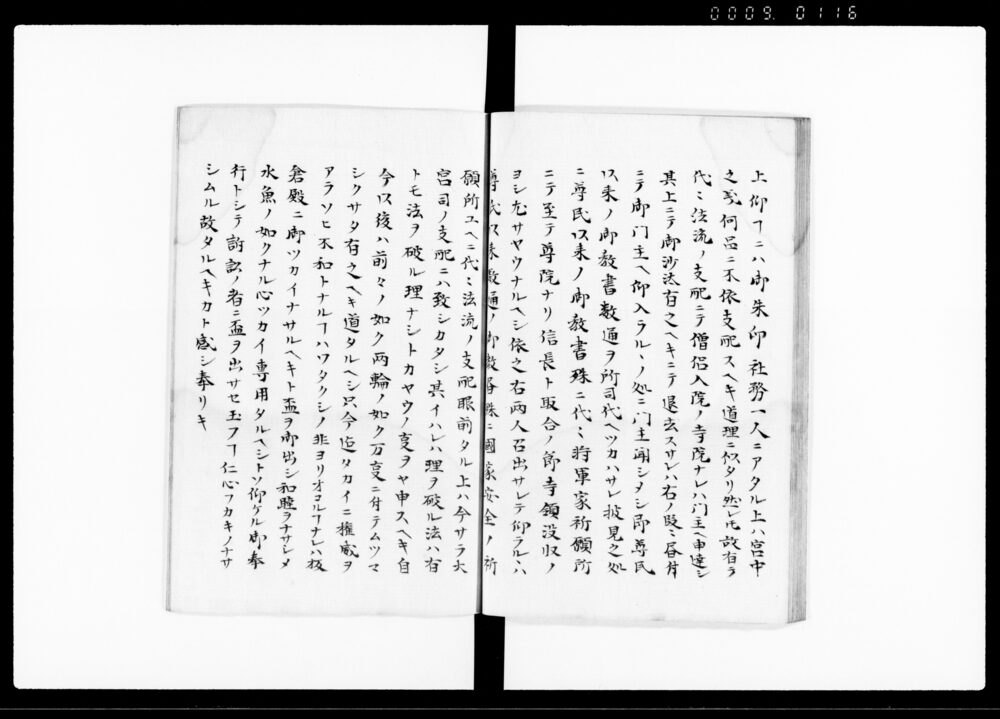 0009. 0116
上仰フニハ御朱印社務一人ニアタル上ハ宮中
之㕝何品ニ不依支配スヘキ道理ニ似タリ然レ𪜈故有テ
代〻法流ノ支配ニテ僧侶入院ノ寺院ナレハ門主ヘ申達シ
其上ニテ御沙汰有之ヘキニテ退去スサレハ右ノ段〻唇付
ニテ御門主ヘ仰入ラルヽノ処ニ門主聞シメシ即尊氏
以来ノ御教書数通ヲ所司代ヘツカハサレ披見之処
ニ尊氏以来ノ御教書殊ニ代〻将軍家祈願所
ニテ至テ尊院ナリ信長ト取合ノ節寺領没収ノ
ヨシ尤サヤウナルヘシ依之右両人召出サレテ仰ラルヽハ
尊氏以来数通ノ御教書殊ニ國家安全ノ祈
願所ユヘニ代〻法流ノ支配眼前タル上ハ今サラ大
宮司ノ支配ニハ致シカタシ其イハレハ理ヲ破ル法ハ有
トモ法ヲ破ル理ナシトカヤウノ㕝ヲヤ申スヘキ自
今以後ハ前々ノ如ク両輪ノ如ク万㕝ニ付テムツマ
シクサタ有之ヘキ道タルヘシ只今迄タカイニ権威ヲ
アラソヒ不和トナルヿハワタクシノ非ヨリオコルヿナレハ板
倉殿ニ御ツカイナサルヘキト盃ヲ御出シ和睦ヲナサレメ
水魚ノ如クナル心ツカイ専用タルヘシトソ仰ケル御奉
行トシテ訴訟ノ者ニ盃ヲ出サセ玉フヿ仁心フカキノナサ
シムル故タルヘキカト感シ奉リキ